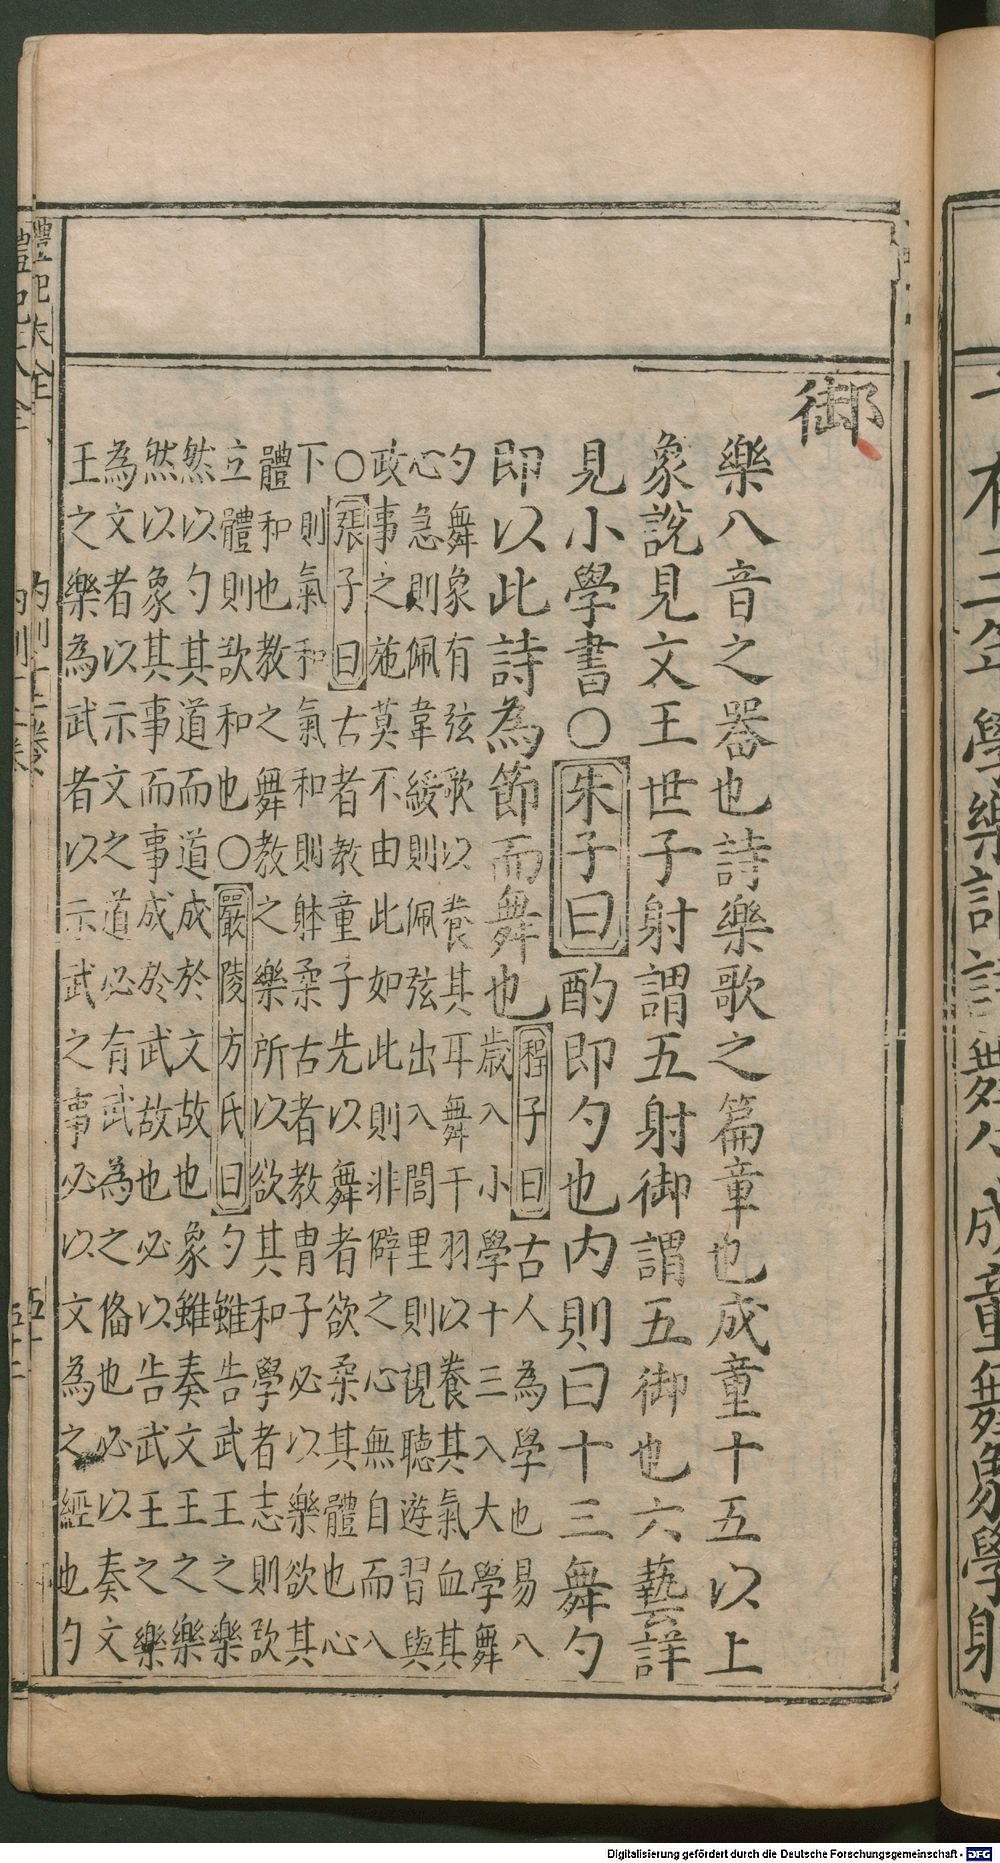 十有三年學樂誦詩舞勺成童舞象學射
御
樂八音之器也詩樂歌之篇章也成童十五以上
象說見文王世子射謂五射御謂五御也六藝詳
見小學書○朱子曰酌即勺也内則曰十三舞勺
即以此詩為節而舞也程子曰古人為學也易八
歲入小學十三入大學舞
勺舞象有弦歌以養其耳舞干羽以養其氣血其
心急則佩韋緩則佩弦出入閭里則視聽遊習與
政事之施莫不由此如此則非僻之心無自而入
○張子曰古者教童子先以舞者欲柔其體也心
下則氣和氣和則躰柔古者教冑子必以樂欲其
體和也教之舞教之樂所以欲其和學者志則欲
立體則欲和也○嚴陵方氏曰勺雖告武王之樂
然以勺其道而道成於文故也象雖奏文王之樂
然以象其事而事成於武故也必以告武王之樂
為文者以示文之道必有武為之俻也必以奏文
王之樂為武者以示武之事必以文為之經也勺
禮記大全
Digitalisierung gefördert durch die Deutsche Forschungsgemeinschaft - DFG